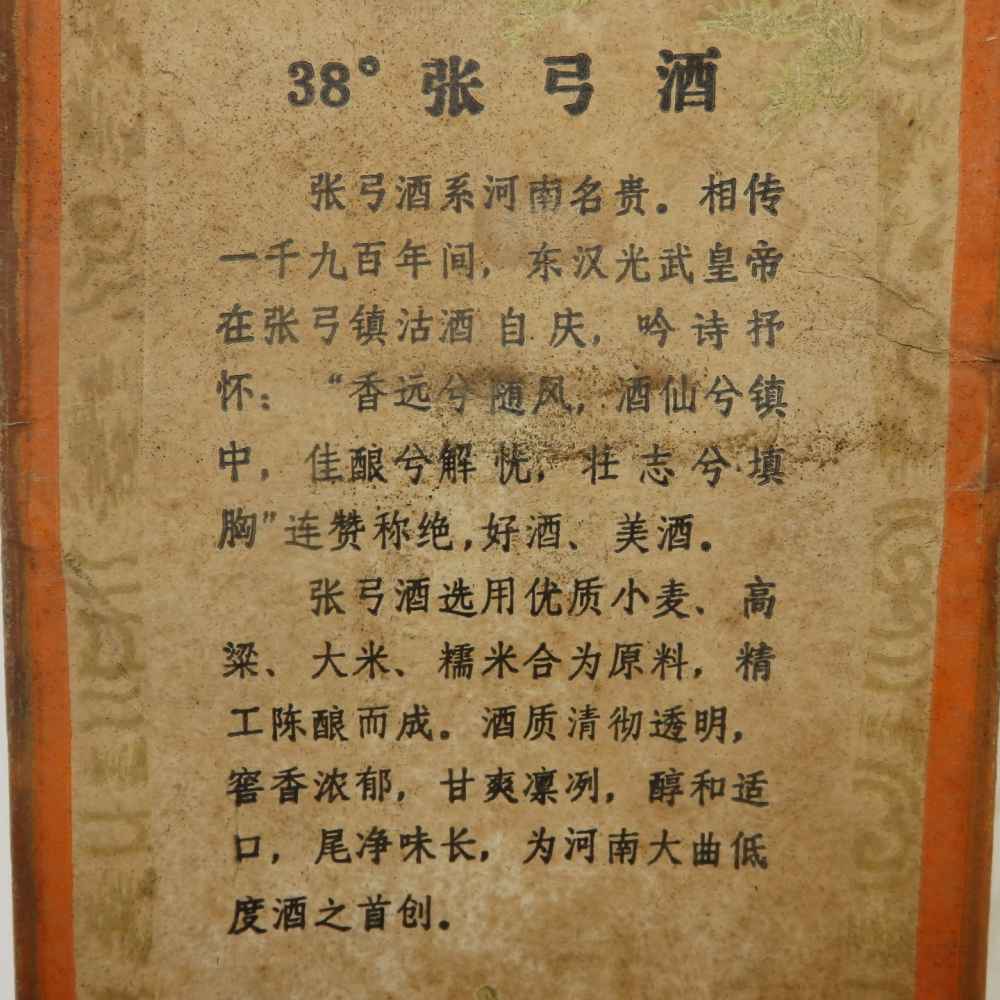 38°张弓酒
张弓酒系河南名贵。相传
一千九百年间，东汉光武皇帝
在张弓镇沽酒自庆，吟诗抒
怀：“香远兮随风，酒仙兮镇
中，佳酿兮解忧，壮志兮填
胸”连赞称绝，好酒、美酒。
张弓酒选用优质小麦、高
粱、大米、糯米合为原料，精
工陈酿而成。酒质清彻透明，
窖香浓郁，甘爽凛冽，醇和适
口，尾净味长，为河南大曲低
度酒之首创。